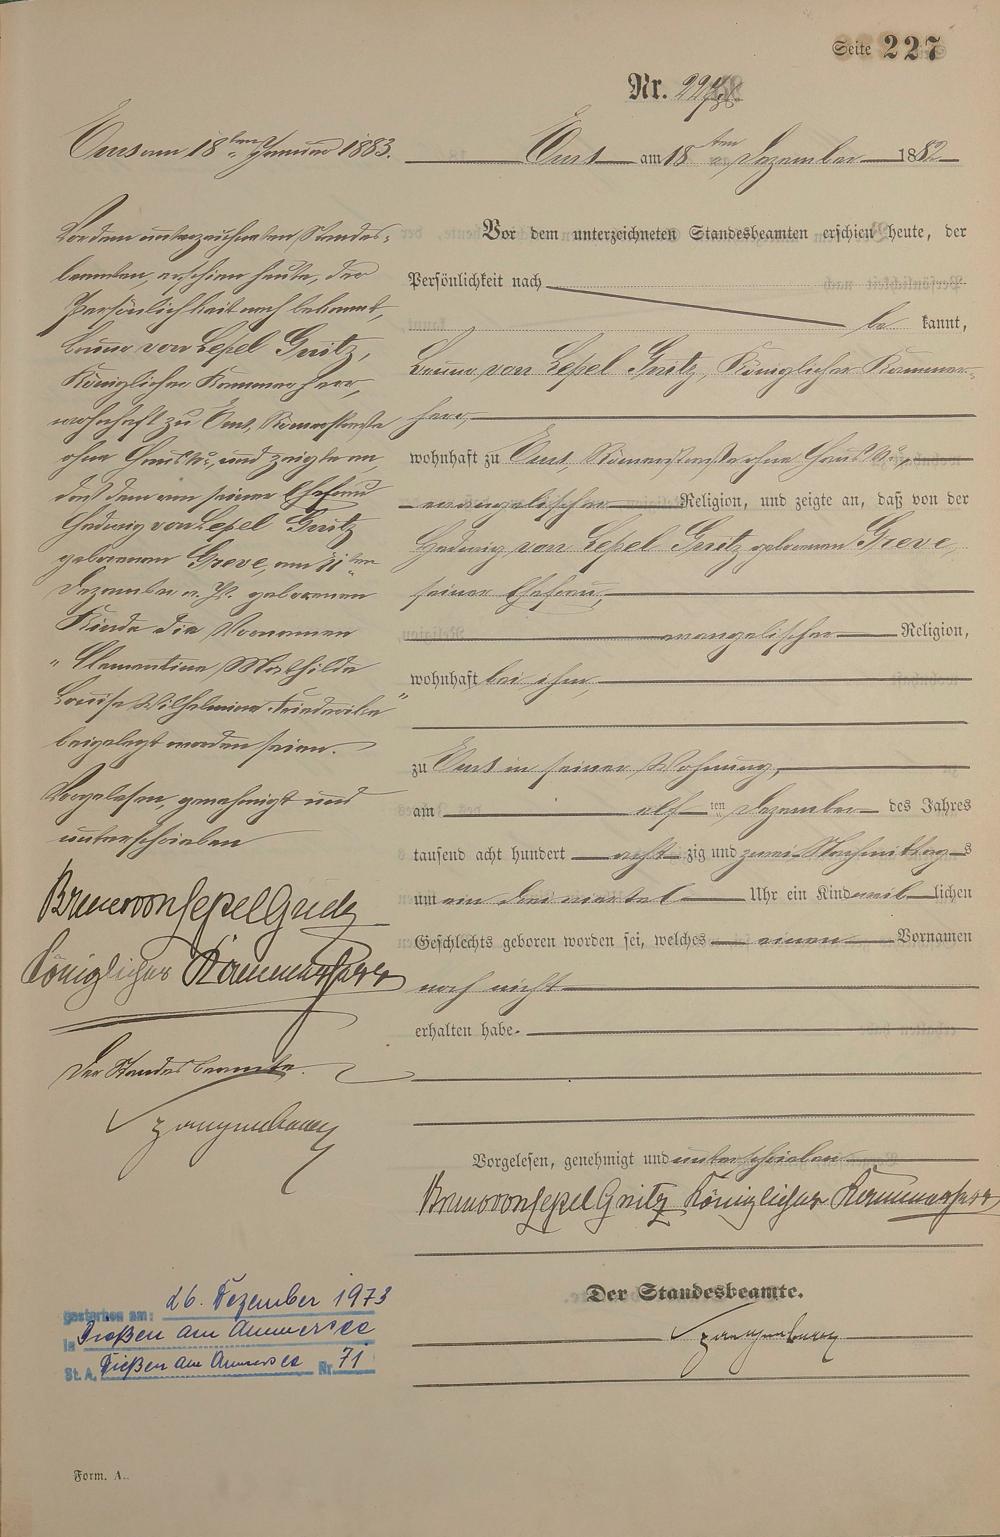 Seite 227
Nr. 227
Ems am 18ten Januar 1883.
Vor dem unterzeichneten Standes-
beamten, erschien heute, der
Persönlichkeit nach bekannt,
Bruno von Lepel Gnitz,
Königlicher Kammerherr,
wohnhaft zu Ems, Römerstraße
ohne Haus Nr., und zeigte an,
daß dem von seiner Ehefrau
Hedwig von Lepel Gnitz
geborenen Greve, am 11ten
Dezember v. Js. geborenen
Kinde die Vornamen
"Clementine Mathilde
Louise Wilhelmine Friederike"
beigelegt worden seien.
Vorgelesen, genehmigt und
unterschrieben
Bruno von Lepel Gnitz
Königlicher Kammerherr
Der Standesbeamte.
gestorben am: 26. Dezember 1973
in Dießen am Ammersee
St. A. Dießen am Ammersee Nr. 71
Ems am 18ten Dezember 1882
Vor dem unterzeichneten Standesbeamten erschien heute, der
Persönlichkeit nach
be kannt,
Bruno von Lepel Gnitz, Königlicher Kammer-
herr,
wohnhaft zu Ems, Römerstraße ohne Haus Nr.,
evangelischer Religion, und zeigte an, daß von der
Hedwig von Lepel Gnitz geborenen Greve,
seiner Ehefrau,
evangelischer Religion,
wohnhaft bei ihm,
zu Ems in seiner Wohnung,
am elf ten Dezember des Jahres
tausend acht hundert acht zig und zwei Nachmittags
um ein drei viertel Uhr ein Kind weib lichen
Geschlechts geboren worden sei, welches einen Vornamen
noch nicht
erhalten habe.
Vorgelesen, genehmigt und unterschrieben
Bruno von Lepel Gnitz Königlicher Kammerherr
Der Standesbeamte.
Form. A.